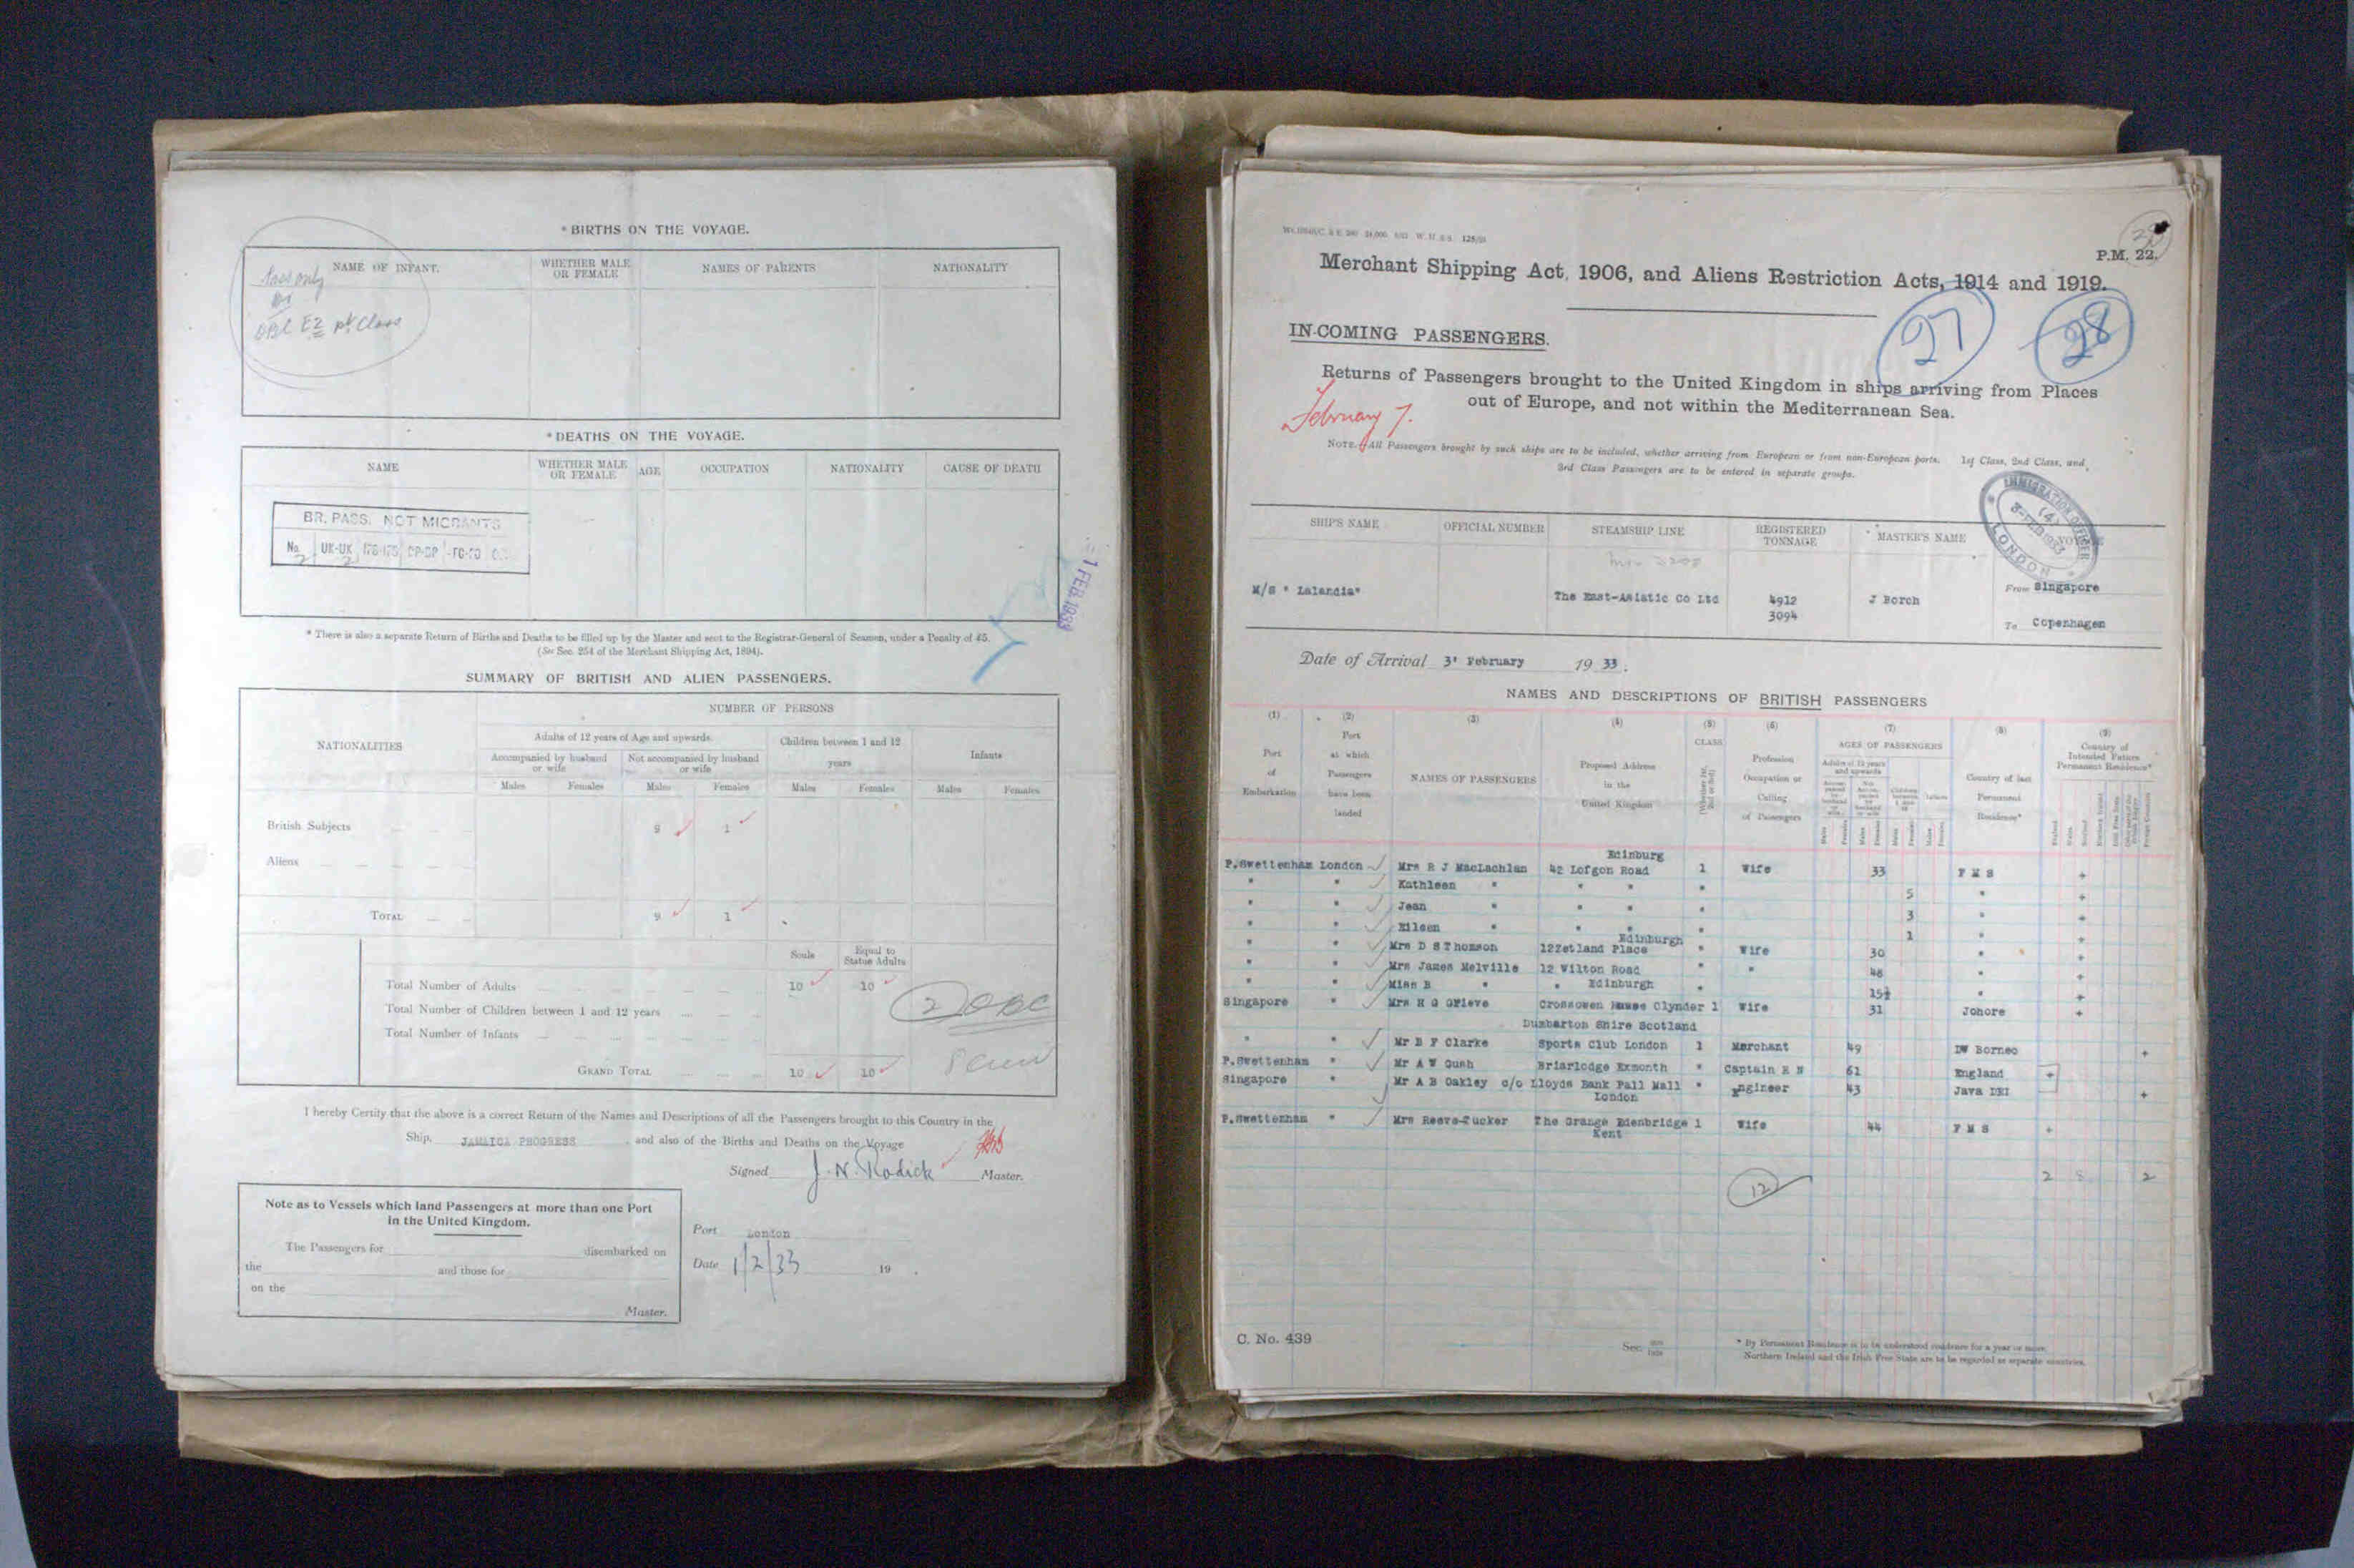 * BIRTHS ON THE VOYAGE.
NAME OF INFANT. WHETHER MALE OR FEMALE NAMES OF PARENTS NATIONALITY
* DEATHS ON THE VOYAGE.
NAME WHETHER MALE OR FEMALE AGE OCCUPATION NATIONALITY CAUSE OF DEATH
BR. PASS. NOT MIGRANTS
No. UK-UK
2 2
1 FEB 1933
* There is also a separate Return of Births and Deaths to be filled up by the Master and sent to the Registrar-General of Seamen, under a Penalty of £5.
(See Sec. 254 of the Merchant Shipping Act, 1894).
SUMMARY OF BRITISH AND ALIEN PASSENGERS.
NATIONALITIES NUMBER OF PERSONS
Adults of 12 years of Age and upwards. Children between 1 and 12 years Infants
Accompanied by husband or wife Not accompanied by husband or wife
Males Females Males Females Males Females Males Females
British Subjects 9 1
Aliens
TOTAL 9 1
Souls Equal to Statue Adults
Total Number of Adults 10 10
Total Number of Children between 1 and 12 years
Total Number of Infants
GRAND TOTAL 10 10
I hereby Certify that the above is a correct Return of the Names and Descriptions of all the Passengers brought to this Country in the
Ship, JAMAICA PROGRESS and also of the Births and Deaths on the Voyage
Signed J. N. Rodick Master.
Note as to Vessels which land Passengers at more than one Port
in the United Kingdom.
The Passengers for disembarked on
the and those for
on the
Master.
Port London
Date 1/2/33 19 .
P.M. 22.
Merchant Shipping Act, 1906, and Aliens Restriction Acts, 1914 and 1919.
27 28
IN-COMING PASSENGERS.
Returns of Passengers brought to the United Kingdom in ships arriving from Places
out of Europe, and not within the Mediterranean Sea.
February 7.
NOTE. All Passengers brought by such ships are to be included, whether arriving from European or from non-European ports. 1st Class, 2nd Class, and
3rd Class Passengers are to be entered in separate groups.
IMMIGRATION OFFICER
(4)
3-FEB 1933
LONDON
SHIP'S NAME OFFICIAL NUMBER STEAMSHIP LINE REGISTERED TONNAGE MASTER'S NAME
M/S " Lalandia" The East-Asiatic Co Ltd 4912 J Borch From Singapore
3094 To Copenhagen
Date of Arrival 3' February 19 33 .
NAMES AND DESCRIPTIONS OF BRITISH PASSENGERS
(1) (2) (3) (4) (5) (6) (7) (8) (9)
Port of Embarkation
Port at which Passengers have been landed
NAMES OF PASSENGERS
Proposed Address in the United Kingdom
CLASS
Profession Occupation or Calling of Passengers
AGES OF PASSENGERS
Adults of 12 years and upwards
Country of last Permanent Residence*
Country of Intended Future Permanent Residence*
Edinburg
P.Swettenham London Mrs R J MacLachlan 42 Lofgon Road 1 Wife 33 F M S +
" " Kathleen " " " " 5 " +
" " Jean " " " " 3 " +
" " Eileen " " " " 1 " +
Edinburgh
" " Mrs D S Thomson 12 Zetland Place " Wife 30 " +
" " Mrs James Melville 12 Wilton Road " " 48 " +
" " Miss B " " Edinburgh " 15½ " +
Singapore " Mrs H G Grieve Crossowen House Clynder 1 Wife 31 Johore +
Dumbarton Shire Scotland
" " Mr B F Clarke Sports Club London 1 Merchant 49 DW Borneo +
P.Swettenham " Mr A W Gush Briarlodge Exmonth " Captain R N 61 England +
Singapore " Mr A B Oakley c/o Lloyds Bank Pall Mall " Engineer 43 Java DEI +
London
P.Swettenham " Mrs Reeve-Tucker The Grange Edenbridge 1 Wife 44 F M S +
Kent
2 8 2
12
C. No. 439
* By Permanent Residence is to be understood residence for a year or more.
Northern Ireland and the Irish Free State are to be regarded as separate countries.